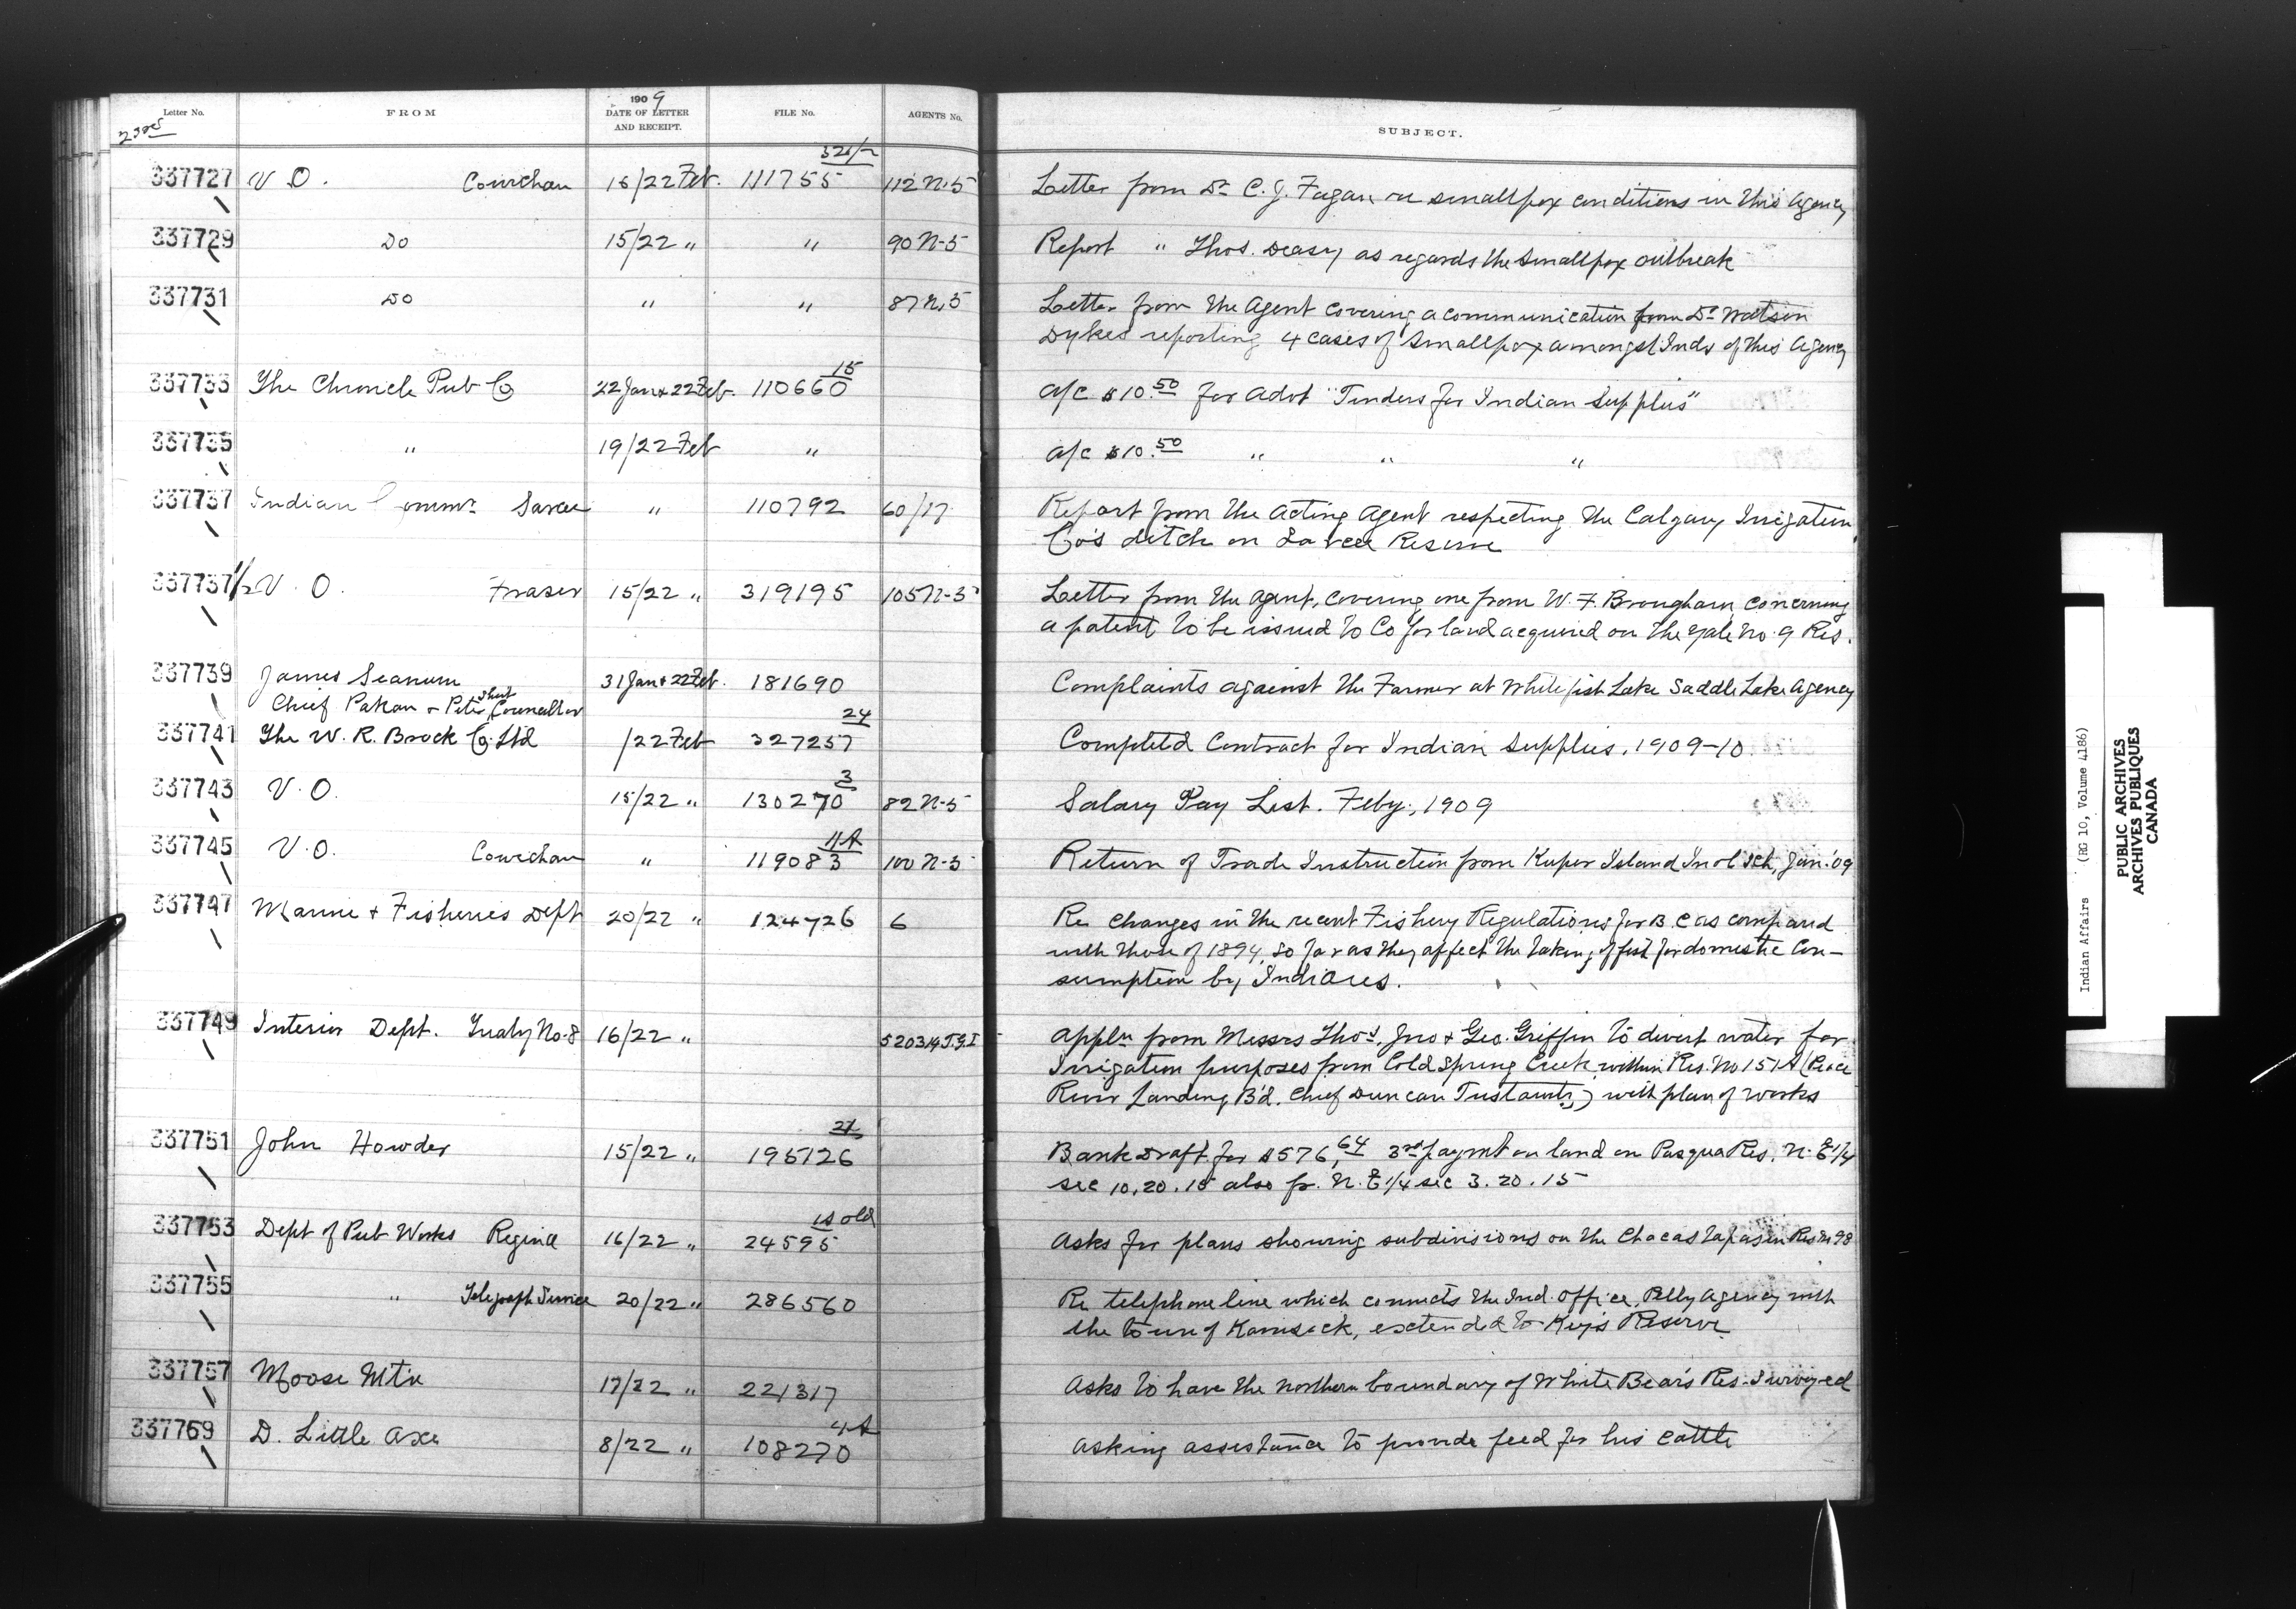 Letter No. FROM 1909 DATE OF LETTER AND RECEIPT. FILE No. AGENTS No. SUBJECT.
23rd
337727 V.O. Cowichan 15/22 Feb. 111755 112 N-5 Letter from Dr C. J. Fagan re smallpox conditions in this Agency
337729 Do 15/22 " " 90 N-5 Report " Thos. Deasy as regards the smallpox outbreak
337731 Do " " 87 N-5 Letter from the Agent covering a communication from Dr Watson
Dykes reporting 4 cases of Smallpox amongst Inds of this Agency
337733 The Chronicle Pub Co 22 Jan & 22 Feb. 110660 15 a/c $10.50 for Advt "Tenders for Indian Supplies"
337735 " 19/22 Feb " a/c $10.50 " " "
337737 Indian Commr. Sarcee " 110792 60/17 Report from the Acting Agent respecting the Calgary Irrigation
Co's ditch on Sarcee Reserve
337737 1/2 V.O. Fraser 15/22 " 319195 105 N-5 Letter from the Agent, covering one from W. F. Brougham concerning
a patent to be issued to Co for land acquired on the Yale No. 9 Res.
337739 James Seanum 31 Jan & 22 Feb. 181690 Complaints against the Farmer at Whitefish Lake Saddle Lake Agency
Chief Pakan & Peter Councillor
337741 The W. R. Brock Co. Ltd /22 Feb 327257 24 Completed Contract for Indian Supplies, 1909-10
337743 V.O. 15/22 " 130270 3 82 N-5 Salary Pay List. Feby, 1909
337745 V.O. Cowichan " 119083 11A 100 N-5 Return of Trade Instruction from Kuper Island Ind'l Sch, Jan. '09
337747 Marine & Fisheries Dept 20/22 " 124726 6 Re changes in the recent Fishery Regulations for B.C as compared
with those of 1894, so far as they affect the taking of fish for domestic con-
sumption by Indians.
337749 Interior Dept. Treaty No. 8 16/22 " 520314 T.&I Appln from Messrs Thos., Jno & Geo. Griffin to divert water for
Irrigation purposes from Cold Spring Creek within Res. No 151A (Peace
River Landing B'd. Chief Duncan Tustawits) with plan of works
337751 John Howder 15/22 " 195126 Bank Draft for $576.64 3rd paymt on land on Pasqua Res. N. E 1/4
sec 10.20.15 also fr. N. E 1/4 sec 3.20.15
337753 Dept of Pub Works Regina 16/22 " 24595 old Asks for plans showing subdivisions on the Chacastapasin Res No 98
337755 " Telegraph Service 20/22 " 286560 Re telephone line which connects the Ind. Office, Pelly Agency with
the town of Kamsack, extended to Key's Reserve
337757 Moose Mt'n 17/22 " 221317 Asks to have the northern boundary of White Bear's Res. Surveyed
337759 D. Little Axe 8/22 " 108270 4A Asking assistance to provide feed for his cattle
Indian Affairs (RG 10, Volume 4186)
PUBLIC ARCHIVES
ARCHIVES PUBLIQUES
CANADA